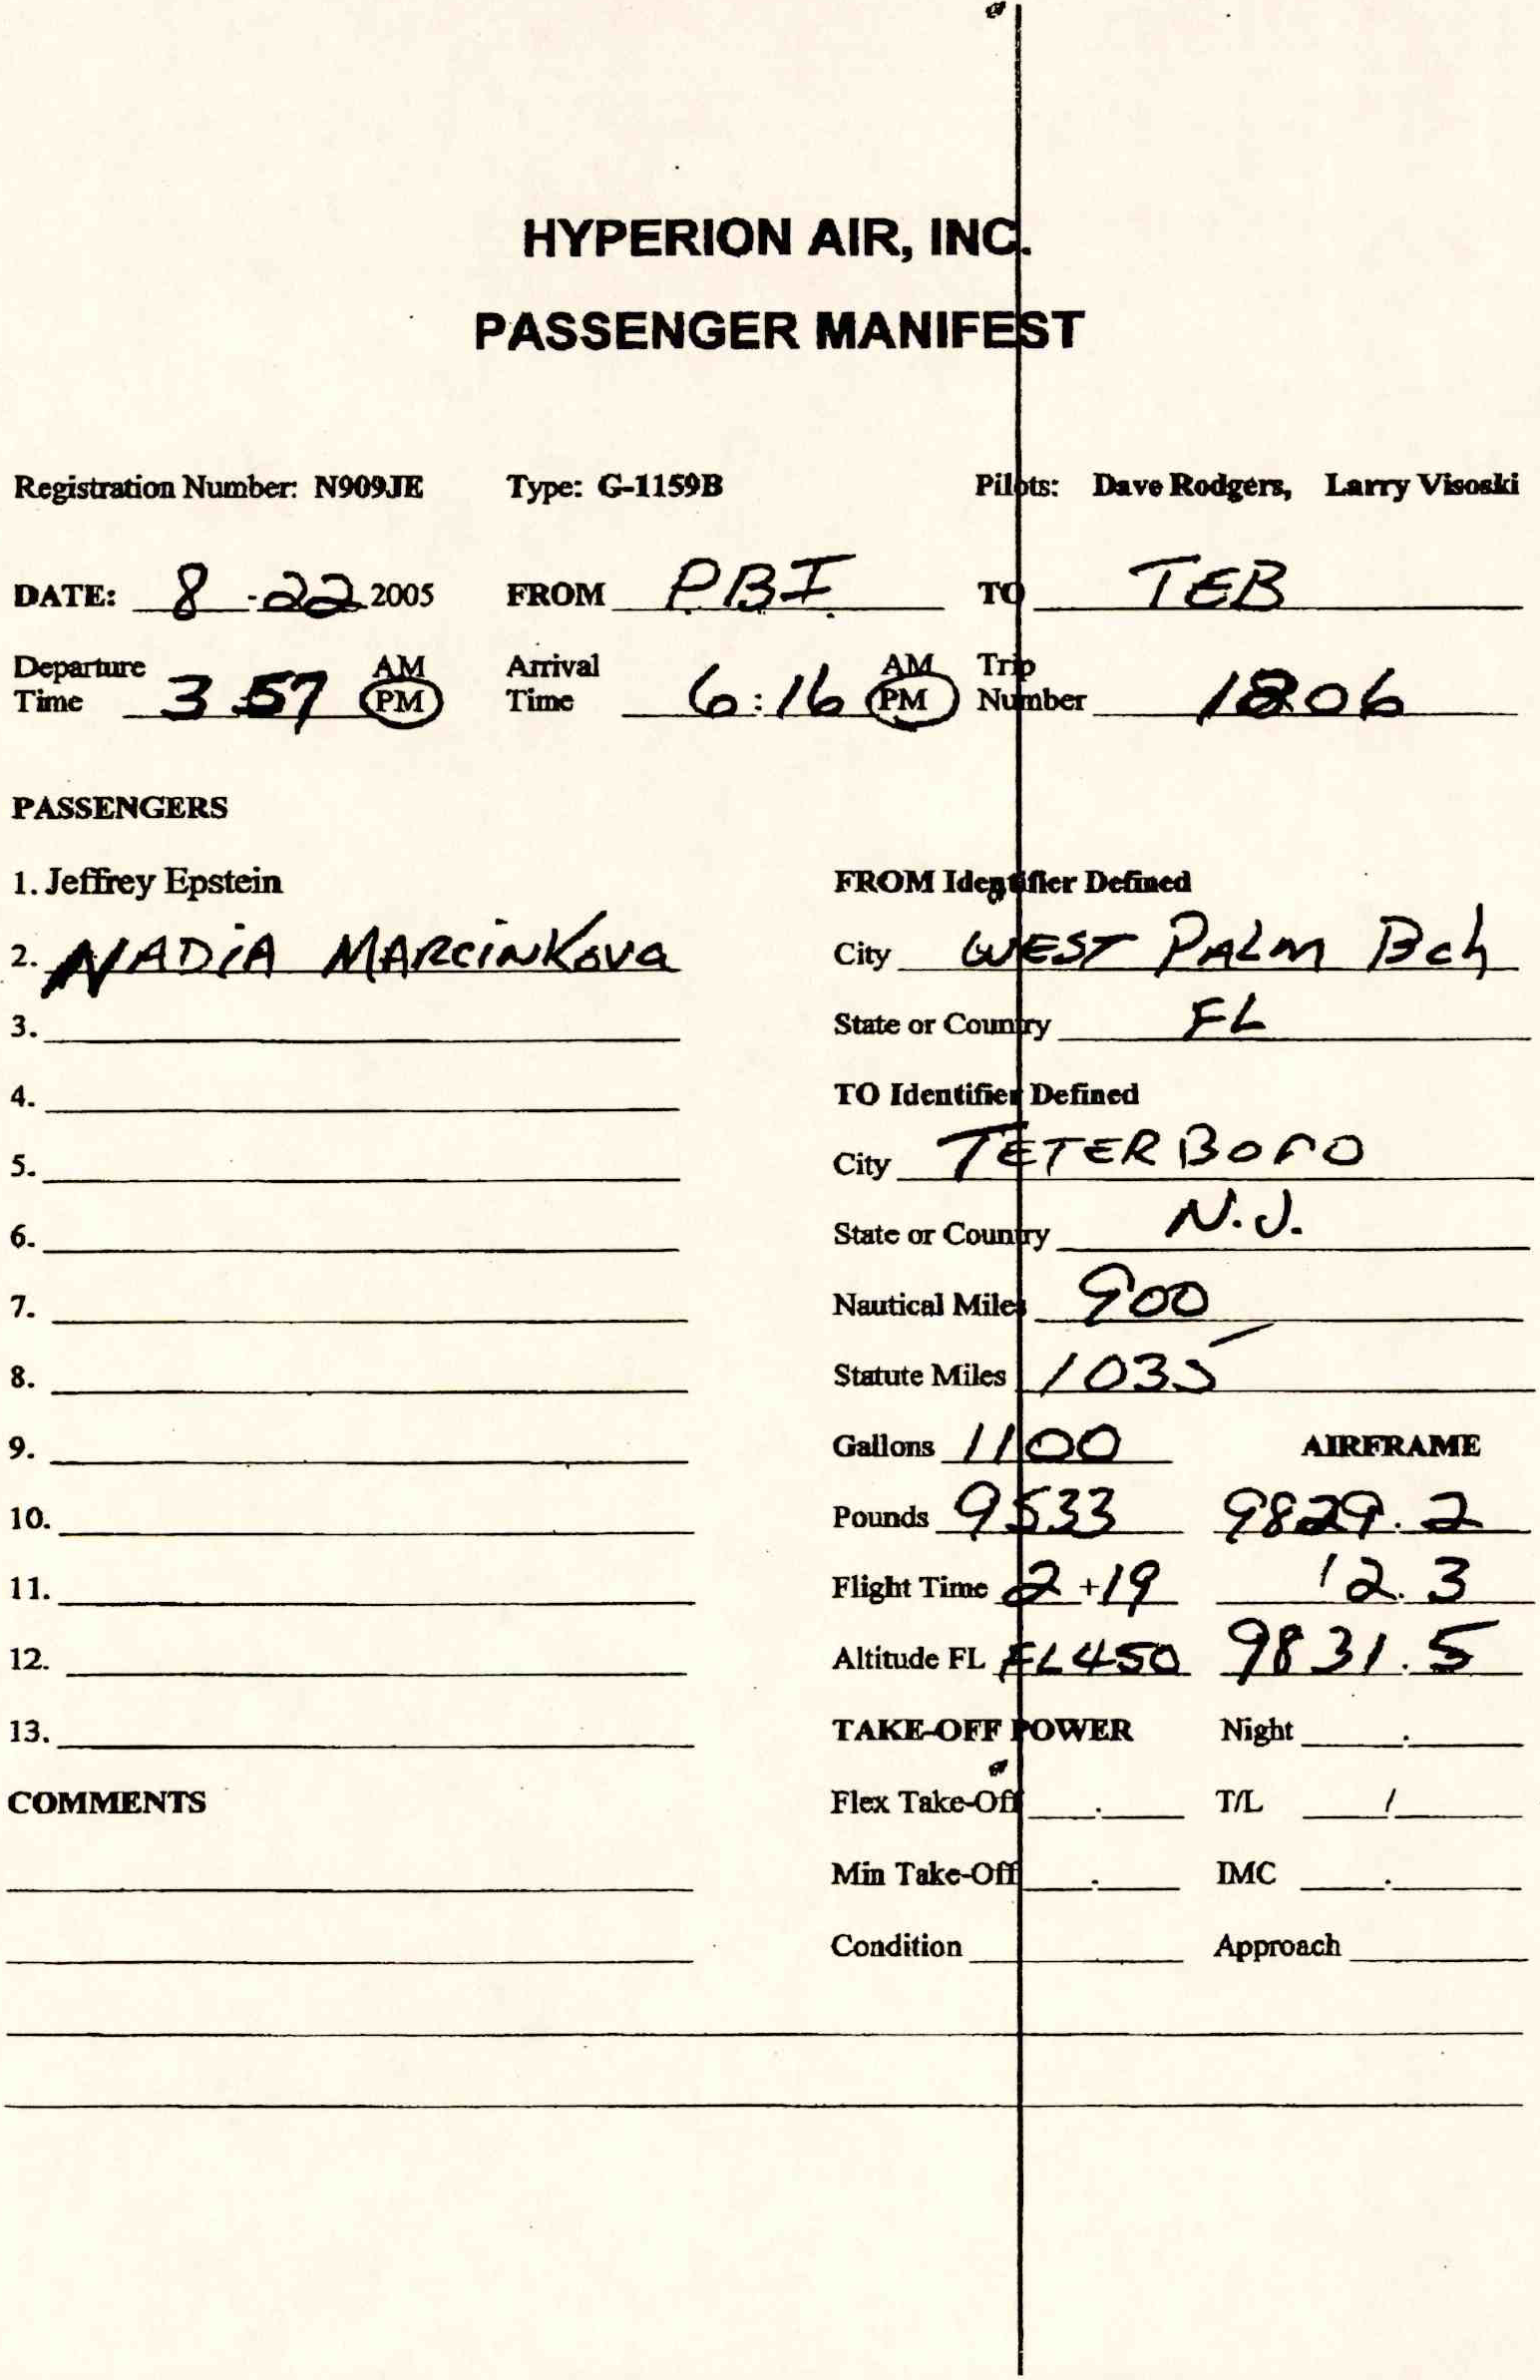 HYPERION AIR, INC.
PASSENGER MANIFEST
Registration Number: N909JE Type: G-1159B Pilots: Dave Rodgers, Larry Visoski
DATE: 8-22 2005 FROM PBI TO TEB
Departure Time 3 57 AM PM Arrival Time 6:16 AM PM Trip Number 1806
PASSENGERS
1. Jeffrey Epstein FROM Identifier Defined
2. NADIA MARCINKOVA City WEST PALM Bch
3. State or Country FL
4. TO Identifier Defined
5. City TETERBORO
6. State or Country N.J.
7. Nautical Miles 900
8. Statute Miles 1035
9. Gallons 1100 AIRFRAME
10. Pounds 9533 9829.2
11. Flight Time 2+19 12.3
12. Altitude FL FL450 9831.5
13. TAKE-OFF POWER Night .
COMMENTS Flex Take-Off . T/L /
Min Take-Off . IMC .
Condition Approach